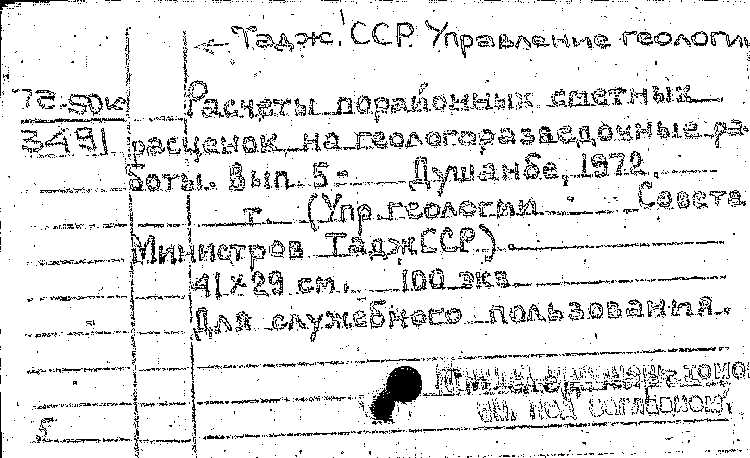 ← Тадж. ССР. Управление геологии
72-50к Расчеты порайонных сметных
3491 расценок на геологоразведочные ра
боты. Вып. 5- Душанбе, 1972.
т. (Упр. геологии Совета
Министров ТаджССР).
41×29 см. 100 экз.
Для служебного пользования.
под
5